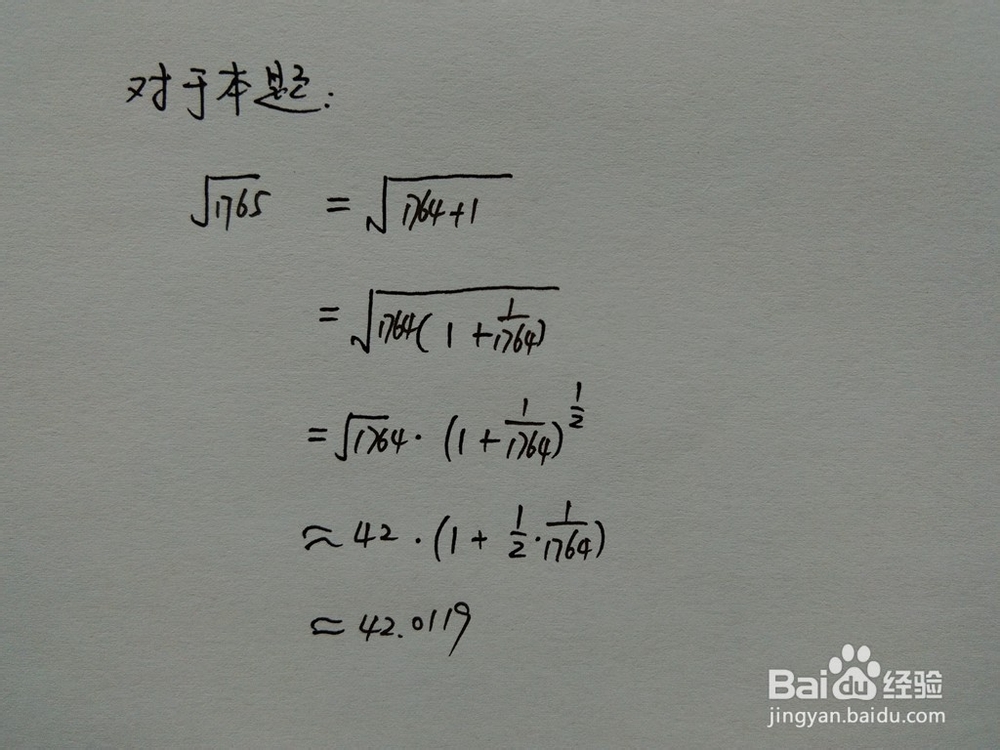 对于本题:
√1765 = √(1764+1)
= √(1764(1+1/1764))
= √1764·(1+1/1764)^(1/2)
≈ 42·(1+1/2·1/1764)
≈ 42.0119
Baidu经验
jingyan.baidu.com